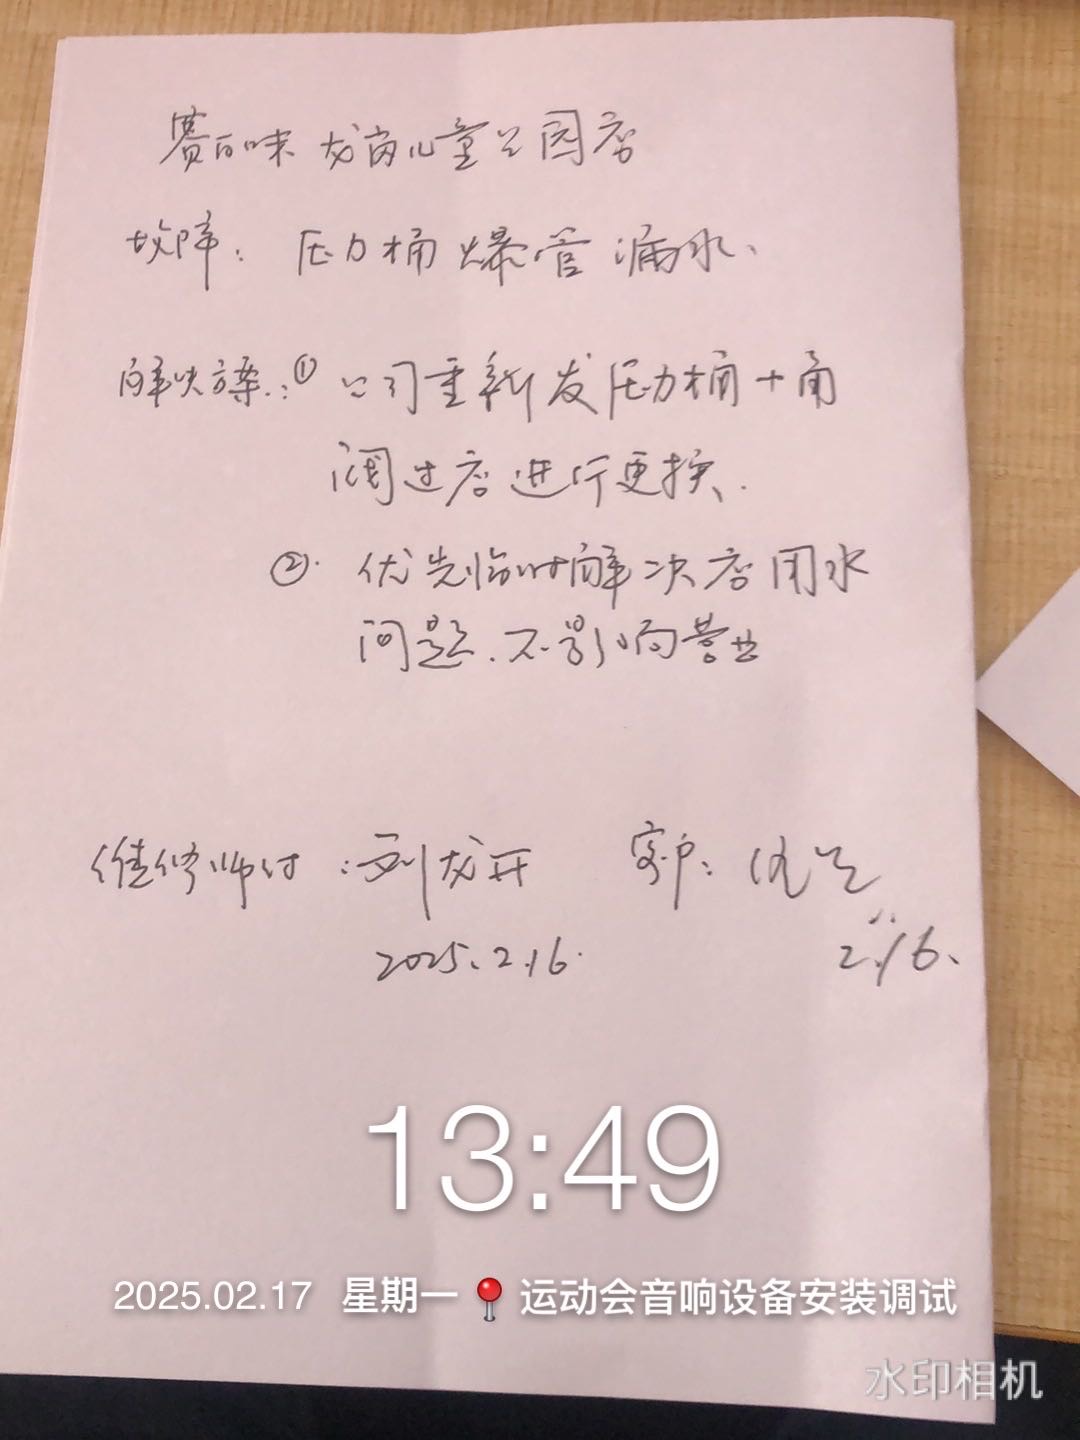 赛百味龙岗儿童公园店
故障：压力桶爆管漏水、
解决方案：① 公司重新发压力桶+角
阀过店进行更换.
②. 优先临时解决店用水
问题.不影响营业
维修师付：刘龙开 客户：
2025.2.16. 2.16.
13:49
2025.02.17 星期一 运动会音响设备安装调试
水印相机